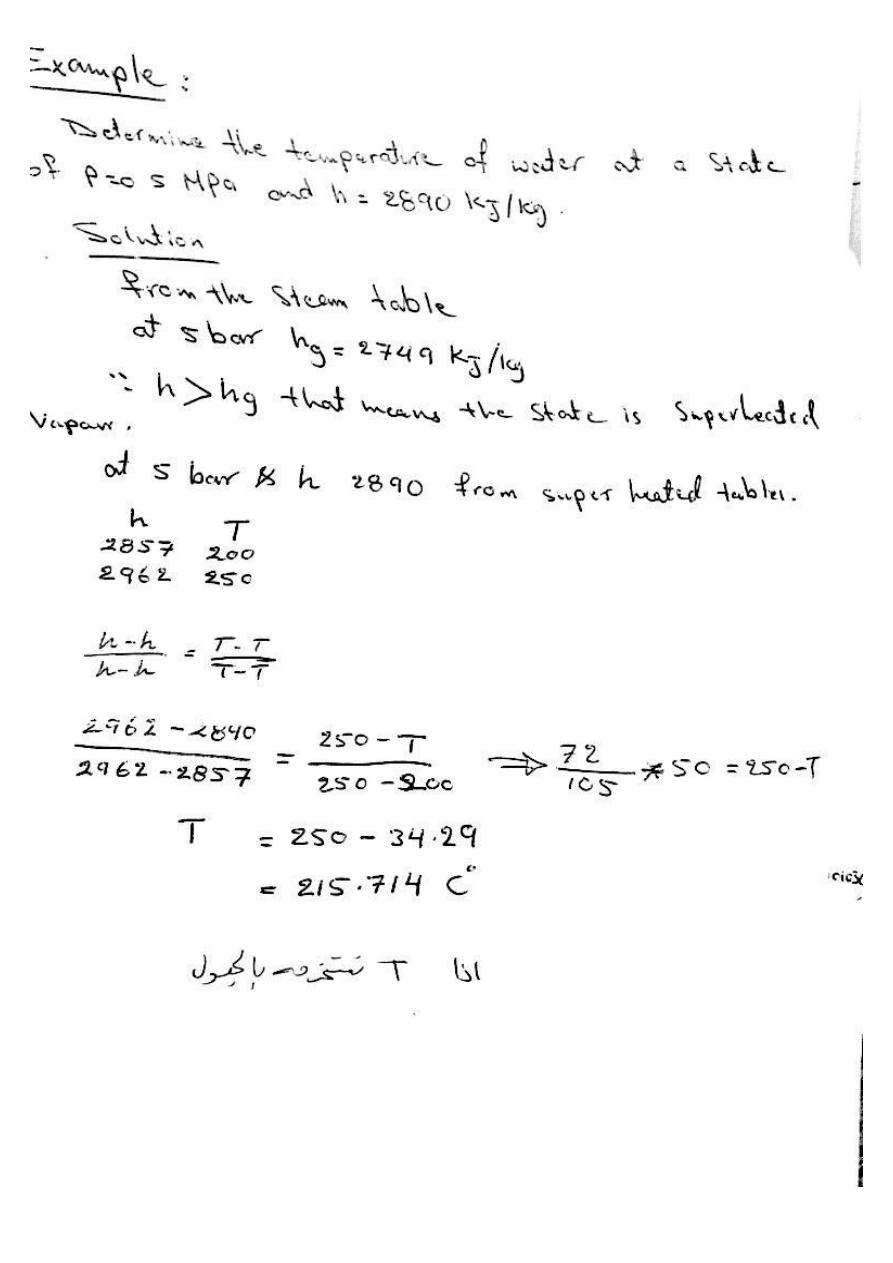 Example :
Determine the temperature of water at a state
of P=0 5 MPa and h = 2890 KJ/kg.
Solution
from the steam table
at 5 bar hg = 2749 KJ/kg
∵ h > hg that means the state is Superheated
Vapour.
at 5 bar & h 2890 from super heated tables.
h T
2857 200
2962 250
h-h / h-h = T-T / T-T
2962 - 2890 / 2962 - 2857 = 250 - T / 250 - 200 ⇒ 72 / 105 * 50 = 250-T
T = 250 - 34.29
= 215.714 C°
اذا T نستخرجه بالجدول